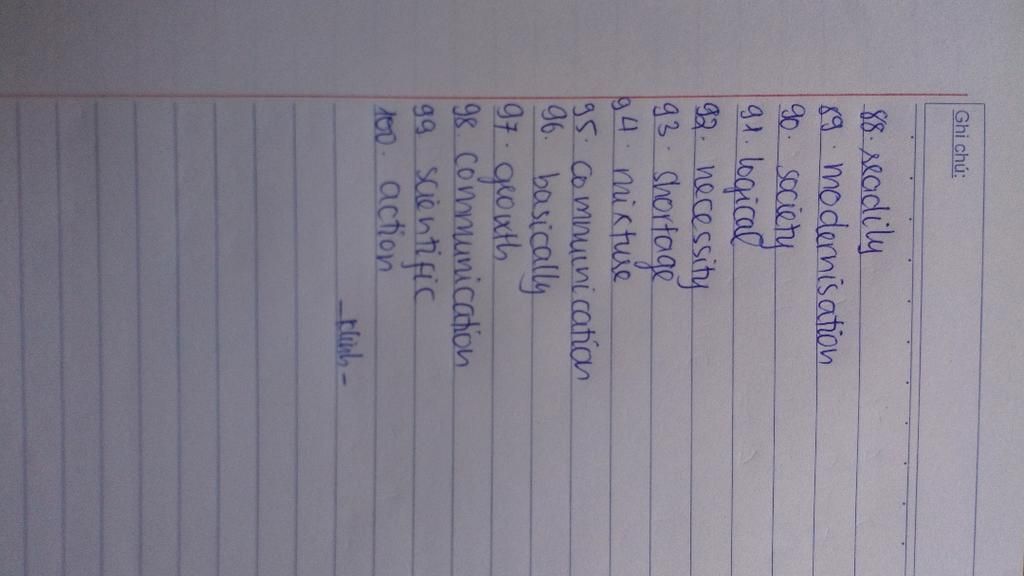 Ghi chú:
88. readily
89. modernisation
90. society
91. logical
92. necessity
93. shortage
94. mixture
95. communication
96. basically
97. growth
98. communication
99. scientific
100. action